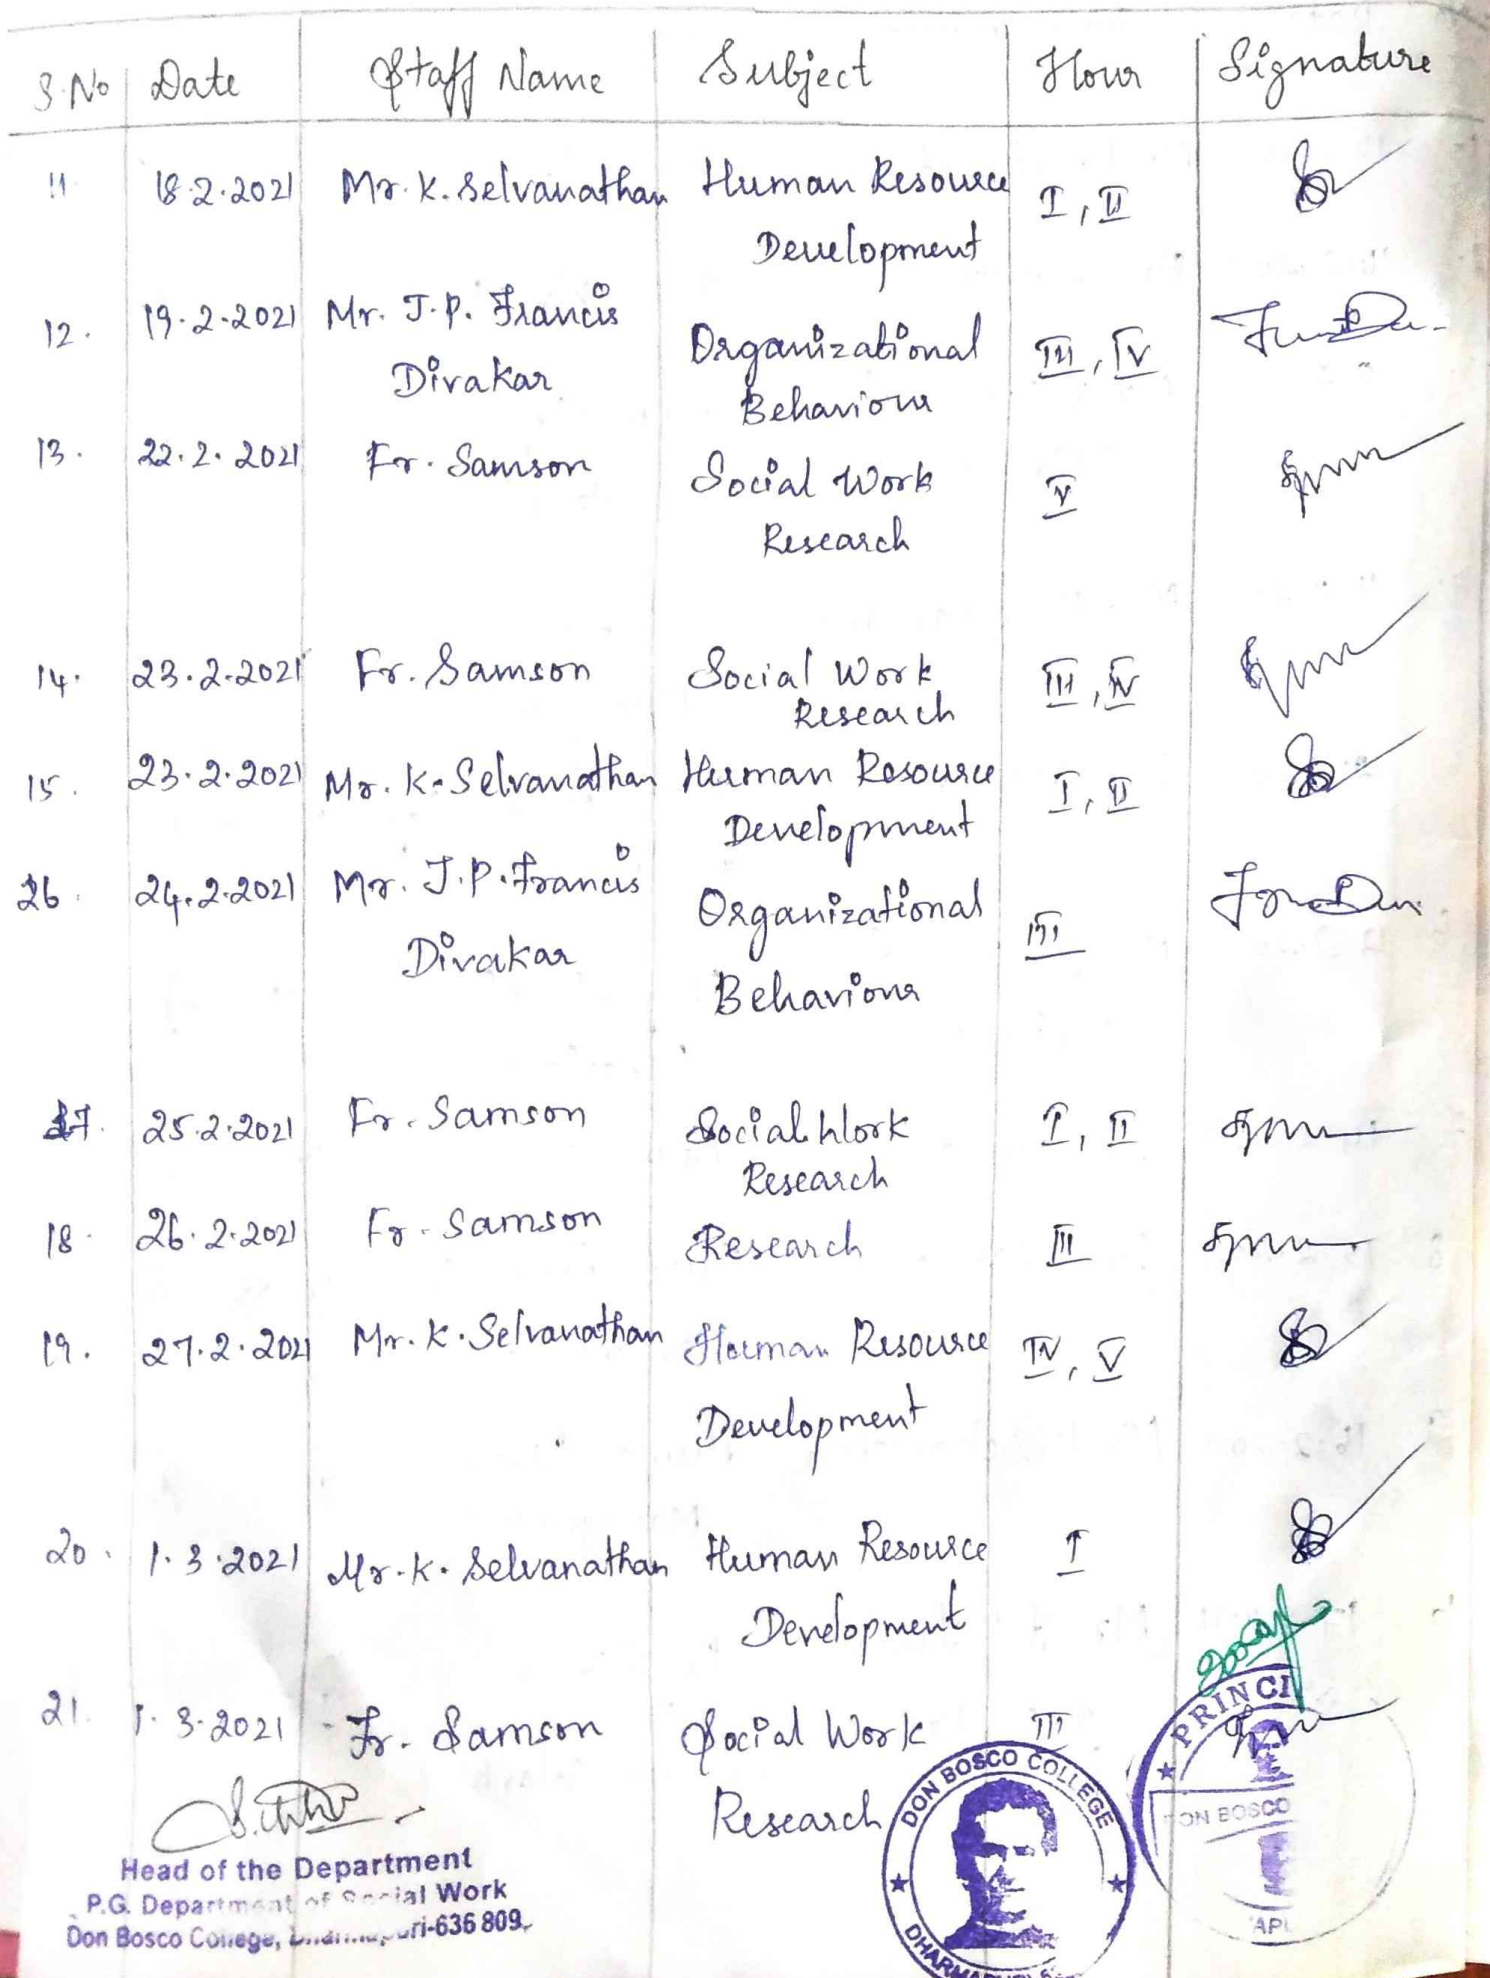 S.No Date Staff Name Subject Hour Signature
11 18.2.2021 Mr. K. Selvanathan Human Resource I, II
Development
12. 19.2.2021 Mr. J.P. Francis Organizational III, IV
Divakar Behaviour
13. 22.2.2021 Fr. Samson Social Work V
Research
14. 23.2.2021 Fr. Samson Social Work III, IV
Research
15. 23.2.2021 Mr. K. Selvanathan Human Resource I, II
Development
26. 24.2.2021 Mr. J.P. Francis Organizational III
Divakar Behaviour
17. 25.2.2021 Fr. Samson Social Work I, II
Research
18. 26.2.2021 Fr. Samson Research III
19. 27.2.2021 Mr. K. Selvanathan Human Resource IV, V
Development
20. 1.3.2021 Mr. K. Selvanathan Human Resource I
Development
21. 1.3.2021 Fr. Samson Social Work III
Research
Head of the Department
P.G. Department of Social Work
Don Bosco College, -636 809.
DON BOSCO COLLEGE
PRINCI
DON BOSCO